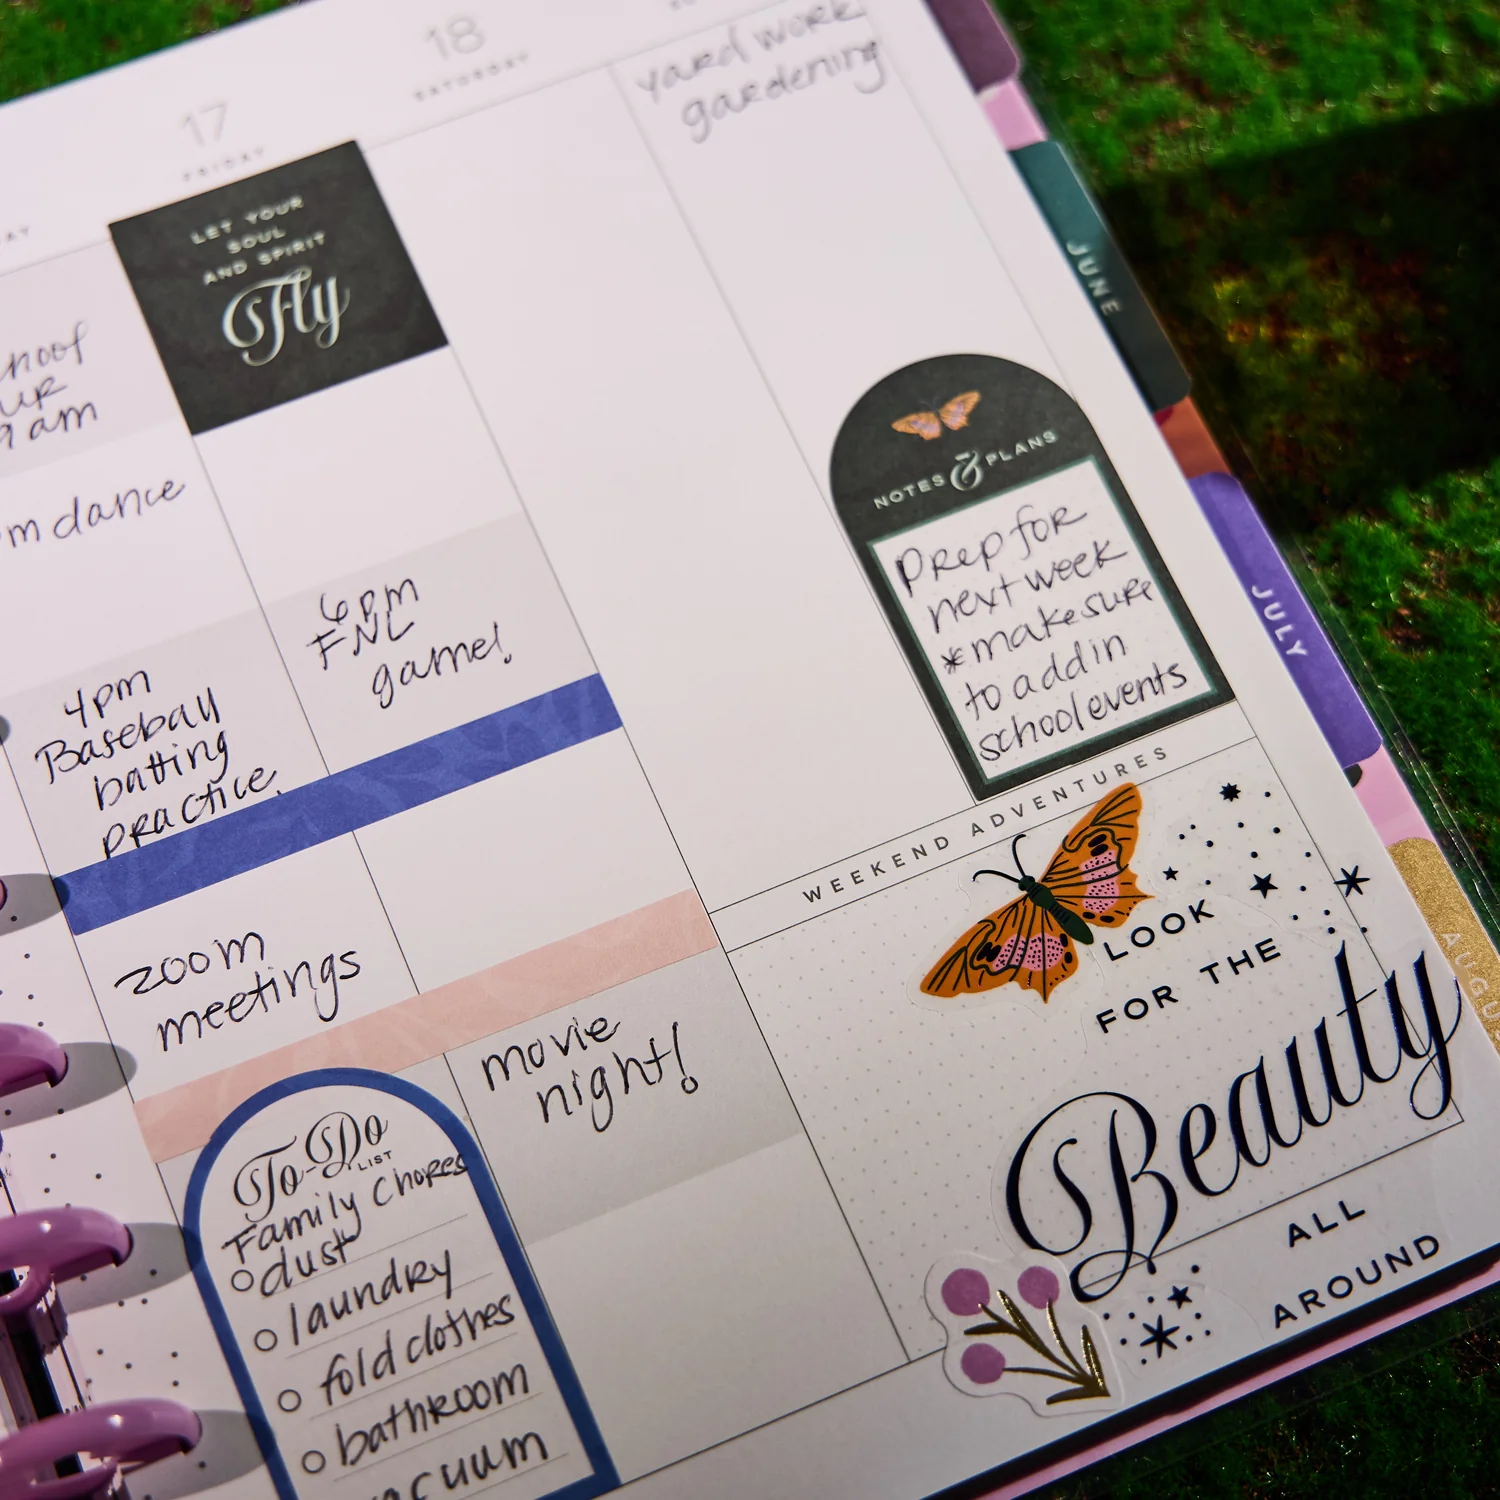 17
FRIDAY
18
SATURDAY
yard work
gardening
LET YOUR
SOUL
AND SPIRIT
Fly
9am
dance
4pm
Baseball
batting
practice
zoom
meetings
To-Do
LIST
Family Chores
dust
laundry
fold clothes
bathroom
6pm
FNL
game!
movie
night!
NOTES & PLANS
Prep for
next week
*make sure
to add in
school events
WEEKEND ADVENTURES
LOOK
FOR THE
Beauty
ALL
AROUND
JUNE
JULY